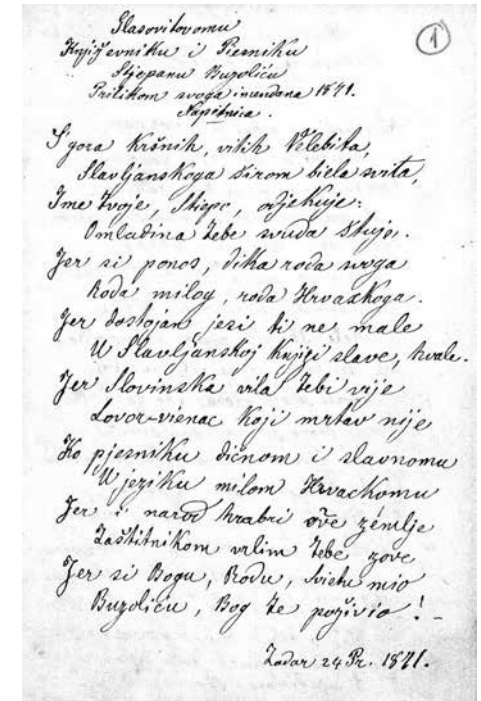 Glasovitomu
Književniku i Piesniku
Stjepanu Buzoliću
Prilikom svoga imendana 1871.
Napitnica.
1
S' gora Kršnih, vitih Velebita,
Slavljanskoga širom biela svita,
Ime tvoje, Stiepo, odjekuje:
Omladina tebe svuda štuje.
Jer si ponos, dika roda svoga
Roda milog, roda Hrvaskoga.
Jer dostojan jesi ti ne male
U Slavljanskoj Knjizi slave, hvale.
Jer Slovinska vila tebi vije
Lovor-vienac koji mrtav nije
Ko pjesniku dičnom i slavnomu
U jeziku milom Hrvackomu
Jer i narod hrabri ove zemlje
Zaštitnikom vrlim tebe zove
Jer si Bogu, Rodu, Svietu mio
Buzoliću, Bog te poživio! -
Zadar 24 Pr. 1871.